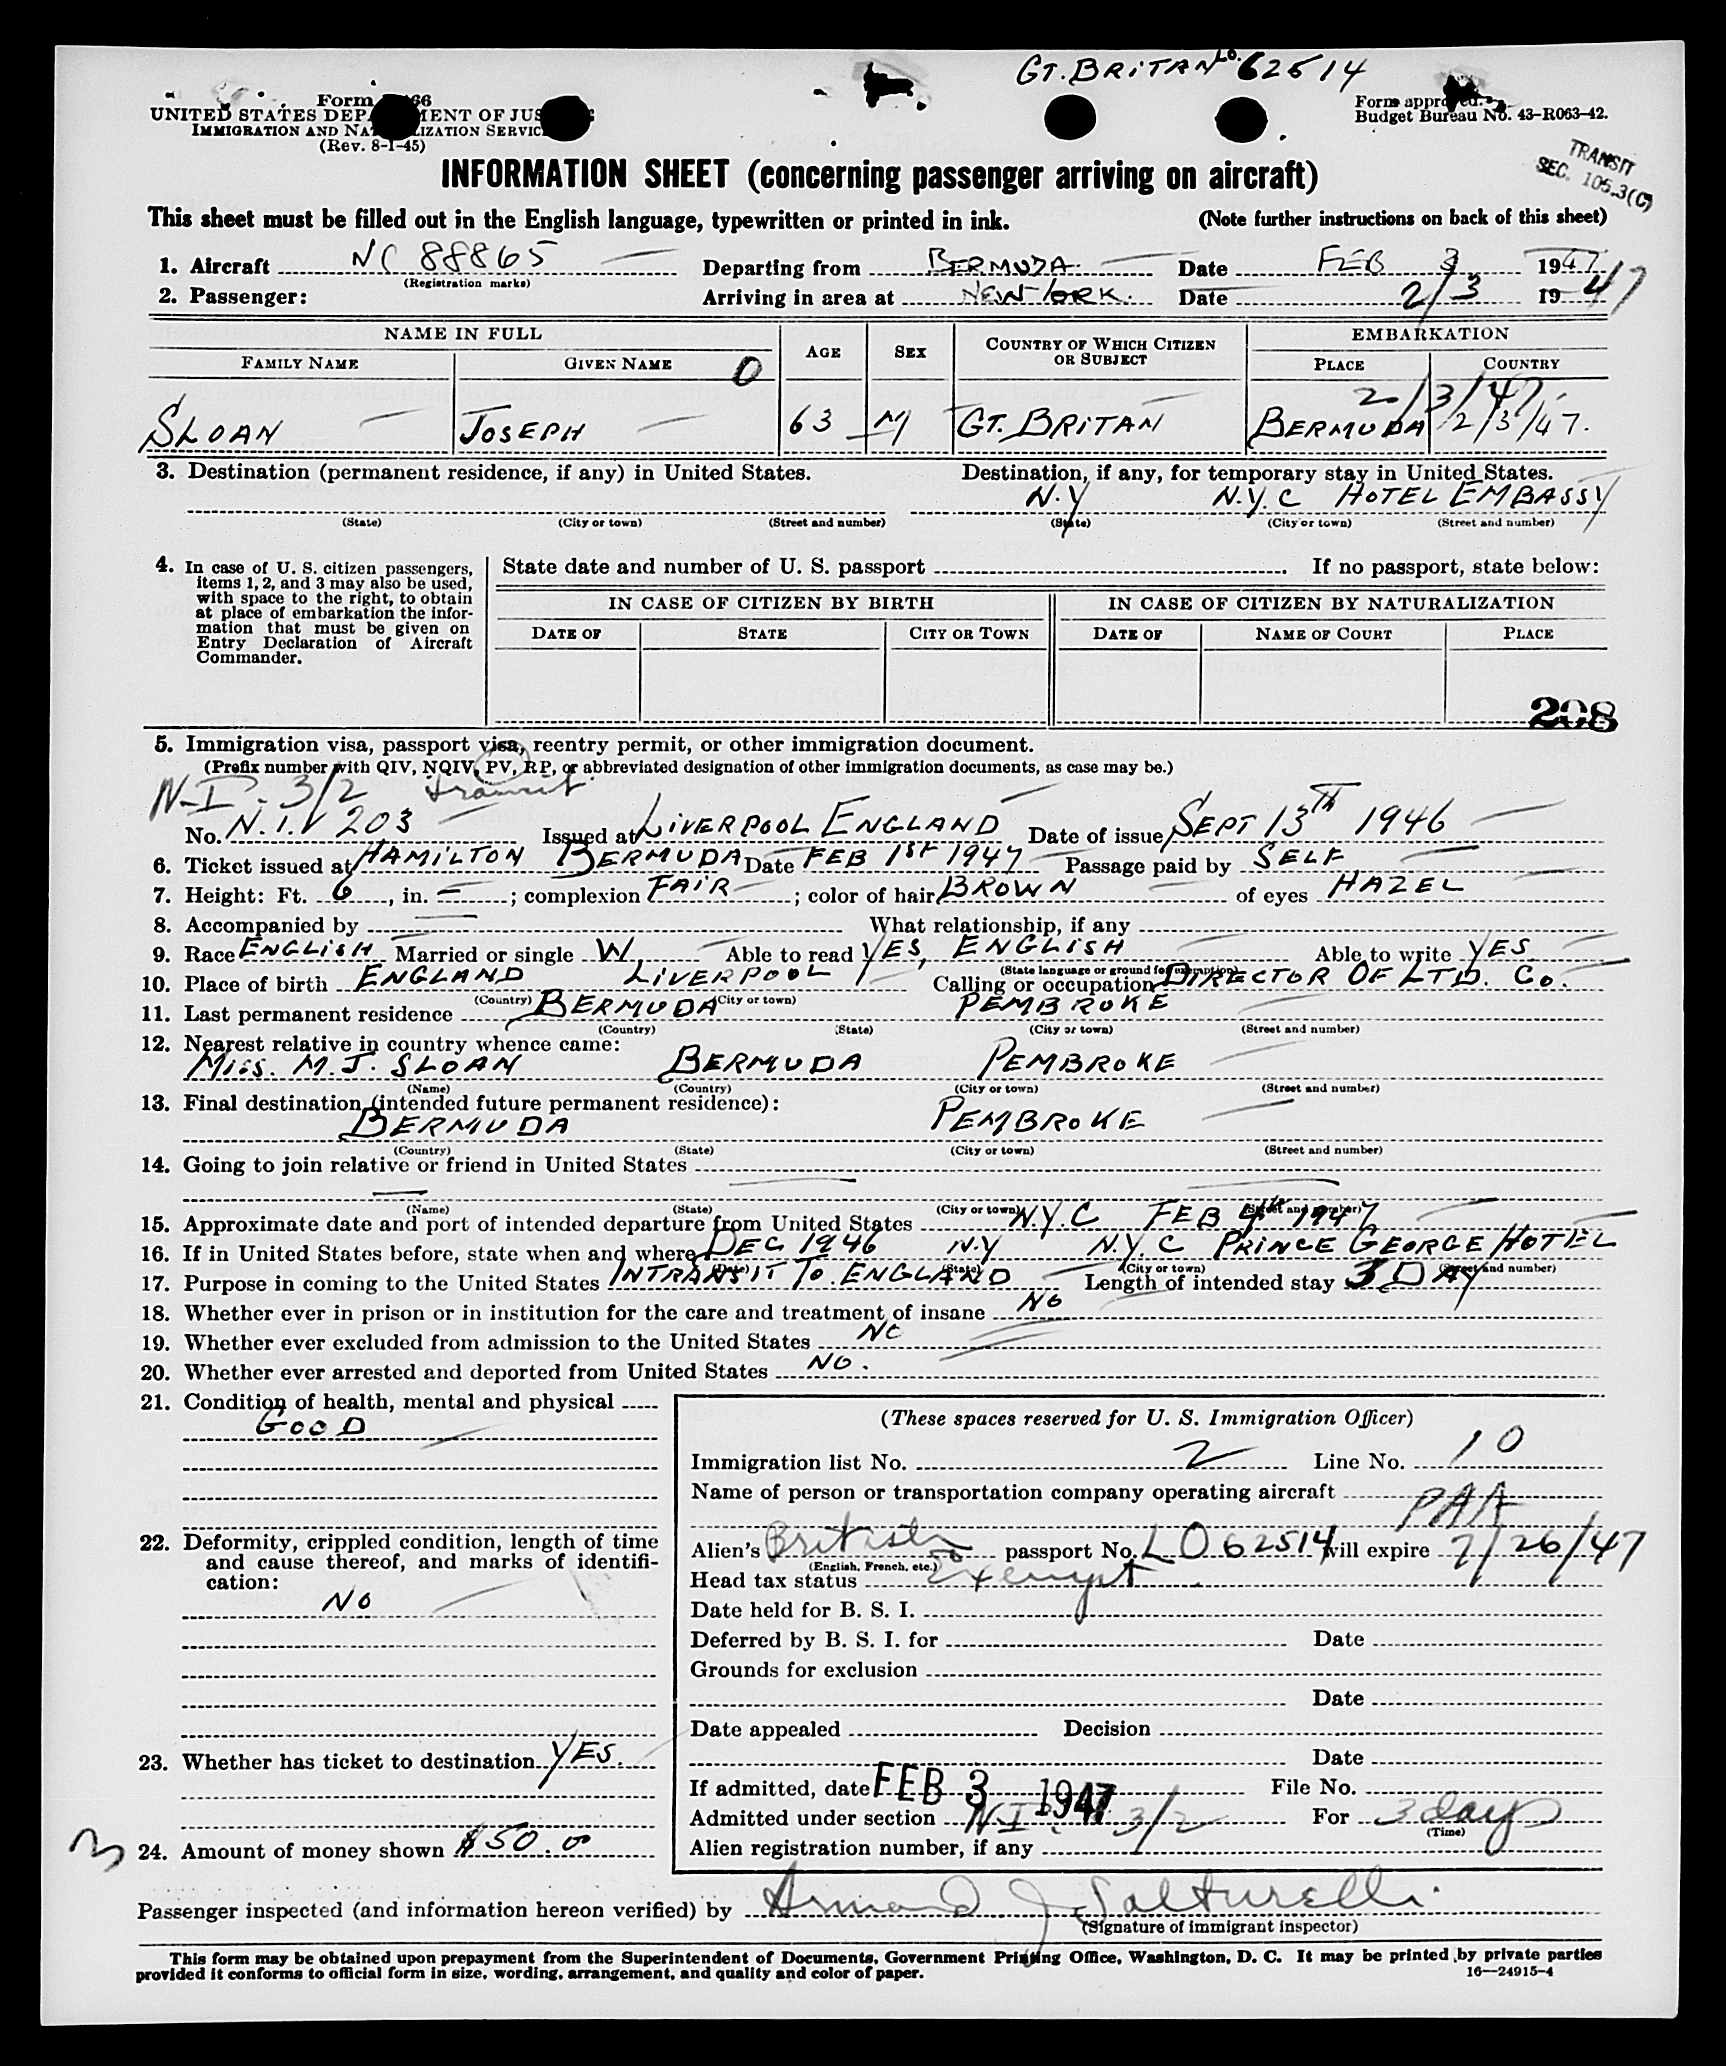 GT. BRITAN LO. 62514
Form I-466
UNITED STATES DEPARTMENT OF JUSTICE
IMMIGRATION AND NATURALIZATION SERVICE
(Rev. 8-1-45)
Form approved.
Budget Bureau No. 43-R063-42.
TRANSIT
SEC. 105.3(C)
INFORMATION SHEET (concerning passenger arriving on aircraft)
This sheet must be filled out in the English language, typewritten or printed in ink. (Note further instructions on back of this sheet)
1. Aircraft NC 88865 Departing from BERMUDA. Date FEB 3 1947
(Registration marks)
2. Passenger: Arriving in area at NEW YORK. Date 2/3 1947
NAME IN FULL AGE SEX COUNTRY OF WHICH CITIZEN OR SUBJECT EMBARKATION
FAMILY NAME GIVEN NAME O PLACE COUNTRY
2/3/47.
SLOAN JOSEPH 63 M GT. BRITAN BERMUDA 2/3/47.
3. Destination (permanent residence, if any) in United States. Destination, if any, for temporary stay in United States.
N.Y N.Y.C HOTEL EMBASSY
(State) (City or town) (Street and number) (State) (City or town) (Street and number)
4. In case of U. S. citizen passengers, items 1, 2, and 3 may also be used, with space to the right, to obtain at place of embarkation the information that must be given on Entry Declaration of Aircraft Commander.
State date and number of U. S. passport If no passport, state below:
IN CASE OF CITIZEN BY BIRTH IN CASE OF CITIZEN BY NATURALIZATION
DATE OF STATE CITY OR TOWN DATE OF NAME OF COURT PLACE
208
5. Immigration visa, passport visa, reentry permit, or other immigration document.
(Prefix number with QIV, NQIV, PV, RP, or abbreviated designation of other immigration documents, as case may be.)
N-I. 3/2 transit
No. N.I.V 203 Issued at LIVERPOOL ENGLAND Date of issue SEPT 13TH 1946
6. Ticket issued at HAMILTON BERMUDA Date FEB 1ST 1947 Passage paid by SELF
7. Height: Ft. 6, in. —; complexion FAIR; color of hair BROWN of eyes HAZEL
8. Accompanied by — What relationship, if any
9. Race ENGLISH Married or single W. Able to read YES, ENGLISH Able to write YES
(State language or ground for exemption)
10. Place of birth ENGLAND LIVERPOOL Calling or occupation DIRECTOR OF LTD. CO.
(Country) (City or town)
11. Last permanent residence BERMUDA PEMBROKE
(Country) (State) (City or town) (Street and number)
12. Nearest relative in country whence came:
MISS. M. J. SLOAN BERMUDA PEMBROKE
(Name) (Country) (City or town) (Street and number)
13. Final destination (intended future permanent residence):
BERMUDA PEMBROKE
(Country) (State) (City or town) (Street and number)
14. Going to join relative or friend in United States
(Name) (State) (City or town) (Street and number)
15. Approximate date and port of intended departure from United States N.Y.C FEB 4th 1947
16. If in United States before, state when and where DEC 1946 N.Y N.Y.C PRINCE GEORGE HOTEL
(Date) (State) (City or town) (Street and number)
17. Purpose in coming to the United States INTRANSIT TO ENGLAND Length of intended stay 3 DAY
18. Whether ever in prison or in institution for the care and treatment of insane NO
19. Whether ever excluded from admission to the United States NO
20. Whether ever arrested and deported from United States NO.
21. Condition of health, mental and physical
GOOD
22. Deformity, crippled condition, length of time and cause thereof, and marks of identification:
NO
23. Whether has ticket to destination YES.
3
24. Amount of money shown $50.00
(These spaces reserved for U. S. Immigration Officer)
Immigration list No. 2 Line No. 10
Name of person or transportation company operating aircraft
PAA
Alien's British passport No. LO 62514 will expire 7/26/47
(English, French, etc.)
Head tax status Exempt
Date held for B. S. I.
Deferred by B. S. I. for Date
Grounds for exclusion
Date
Date appealed Decision
Date
If admitted, date FEB 3 1947 File No.
Admitted under section N.I. 3/2 For 3 days
(Time)
Alien registration number, if any
Passenger inspected (and information hereon verified) by Armand J. Salturelli
(Signature of immigrant inspector)
This form may be obtained upon prepayment from the Superintendent of Documents, Government Printing Office, Washington, D. C. It may be printed by private parties
provided it conforms to official form in size, wording, arrangement, and quality and color of paper.
16—24915-4